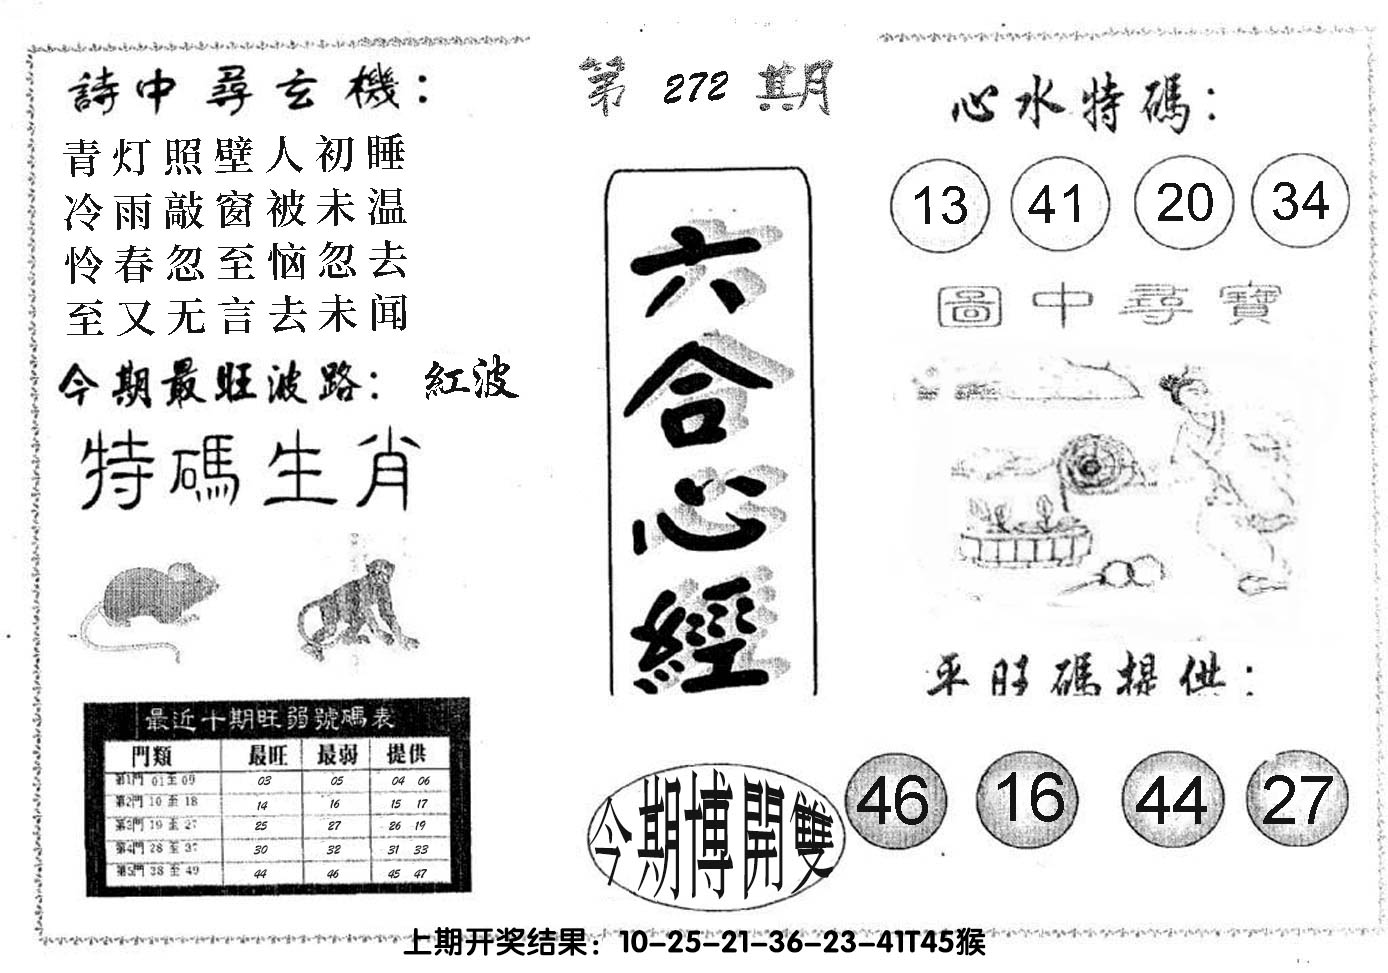 詩中尋玄機：
青灯照壁人初睡
冷雨敲窗被未温
怜春忽至恼忽去
至又无言去未闻
今期最旺波路： 紅波
特碼生肖
最近十期旺弱號碼表
門類 最旺 最弱 提供
第1門 01至09 03 05 04 06
第2門 10至18 14 16 15 17
第3門 19至27 25 27 26 19
第4門 28至37 30 32 31 33
第5門 38至49 44 46 45 47
第272期
六合心經
今期博開雙
心水特碼：
13 41 20 34
圖中尋寶
平旺碼提供：
46 16 44 27
上期开奖结果：10-25-21-36-23-41T45猴